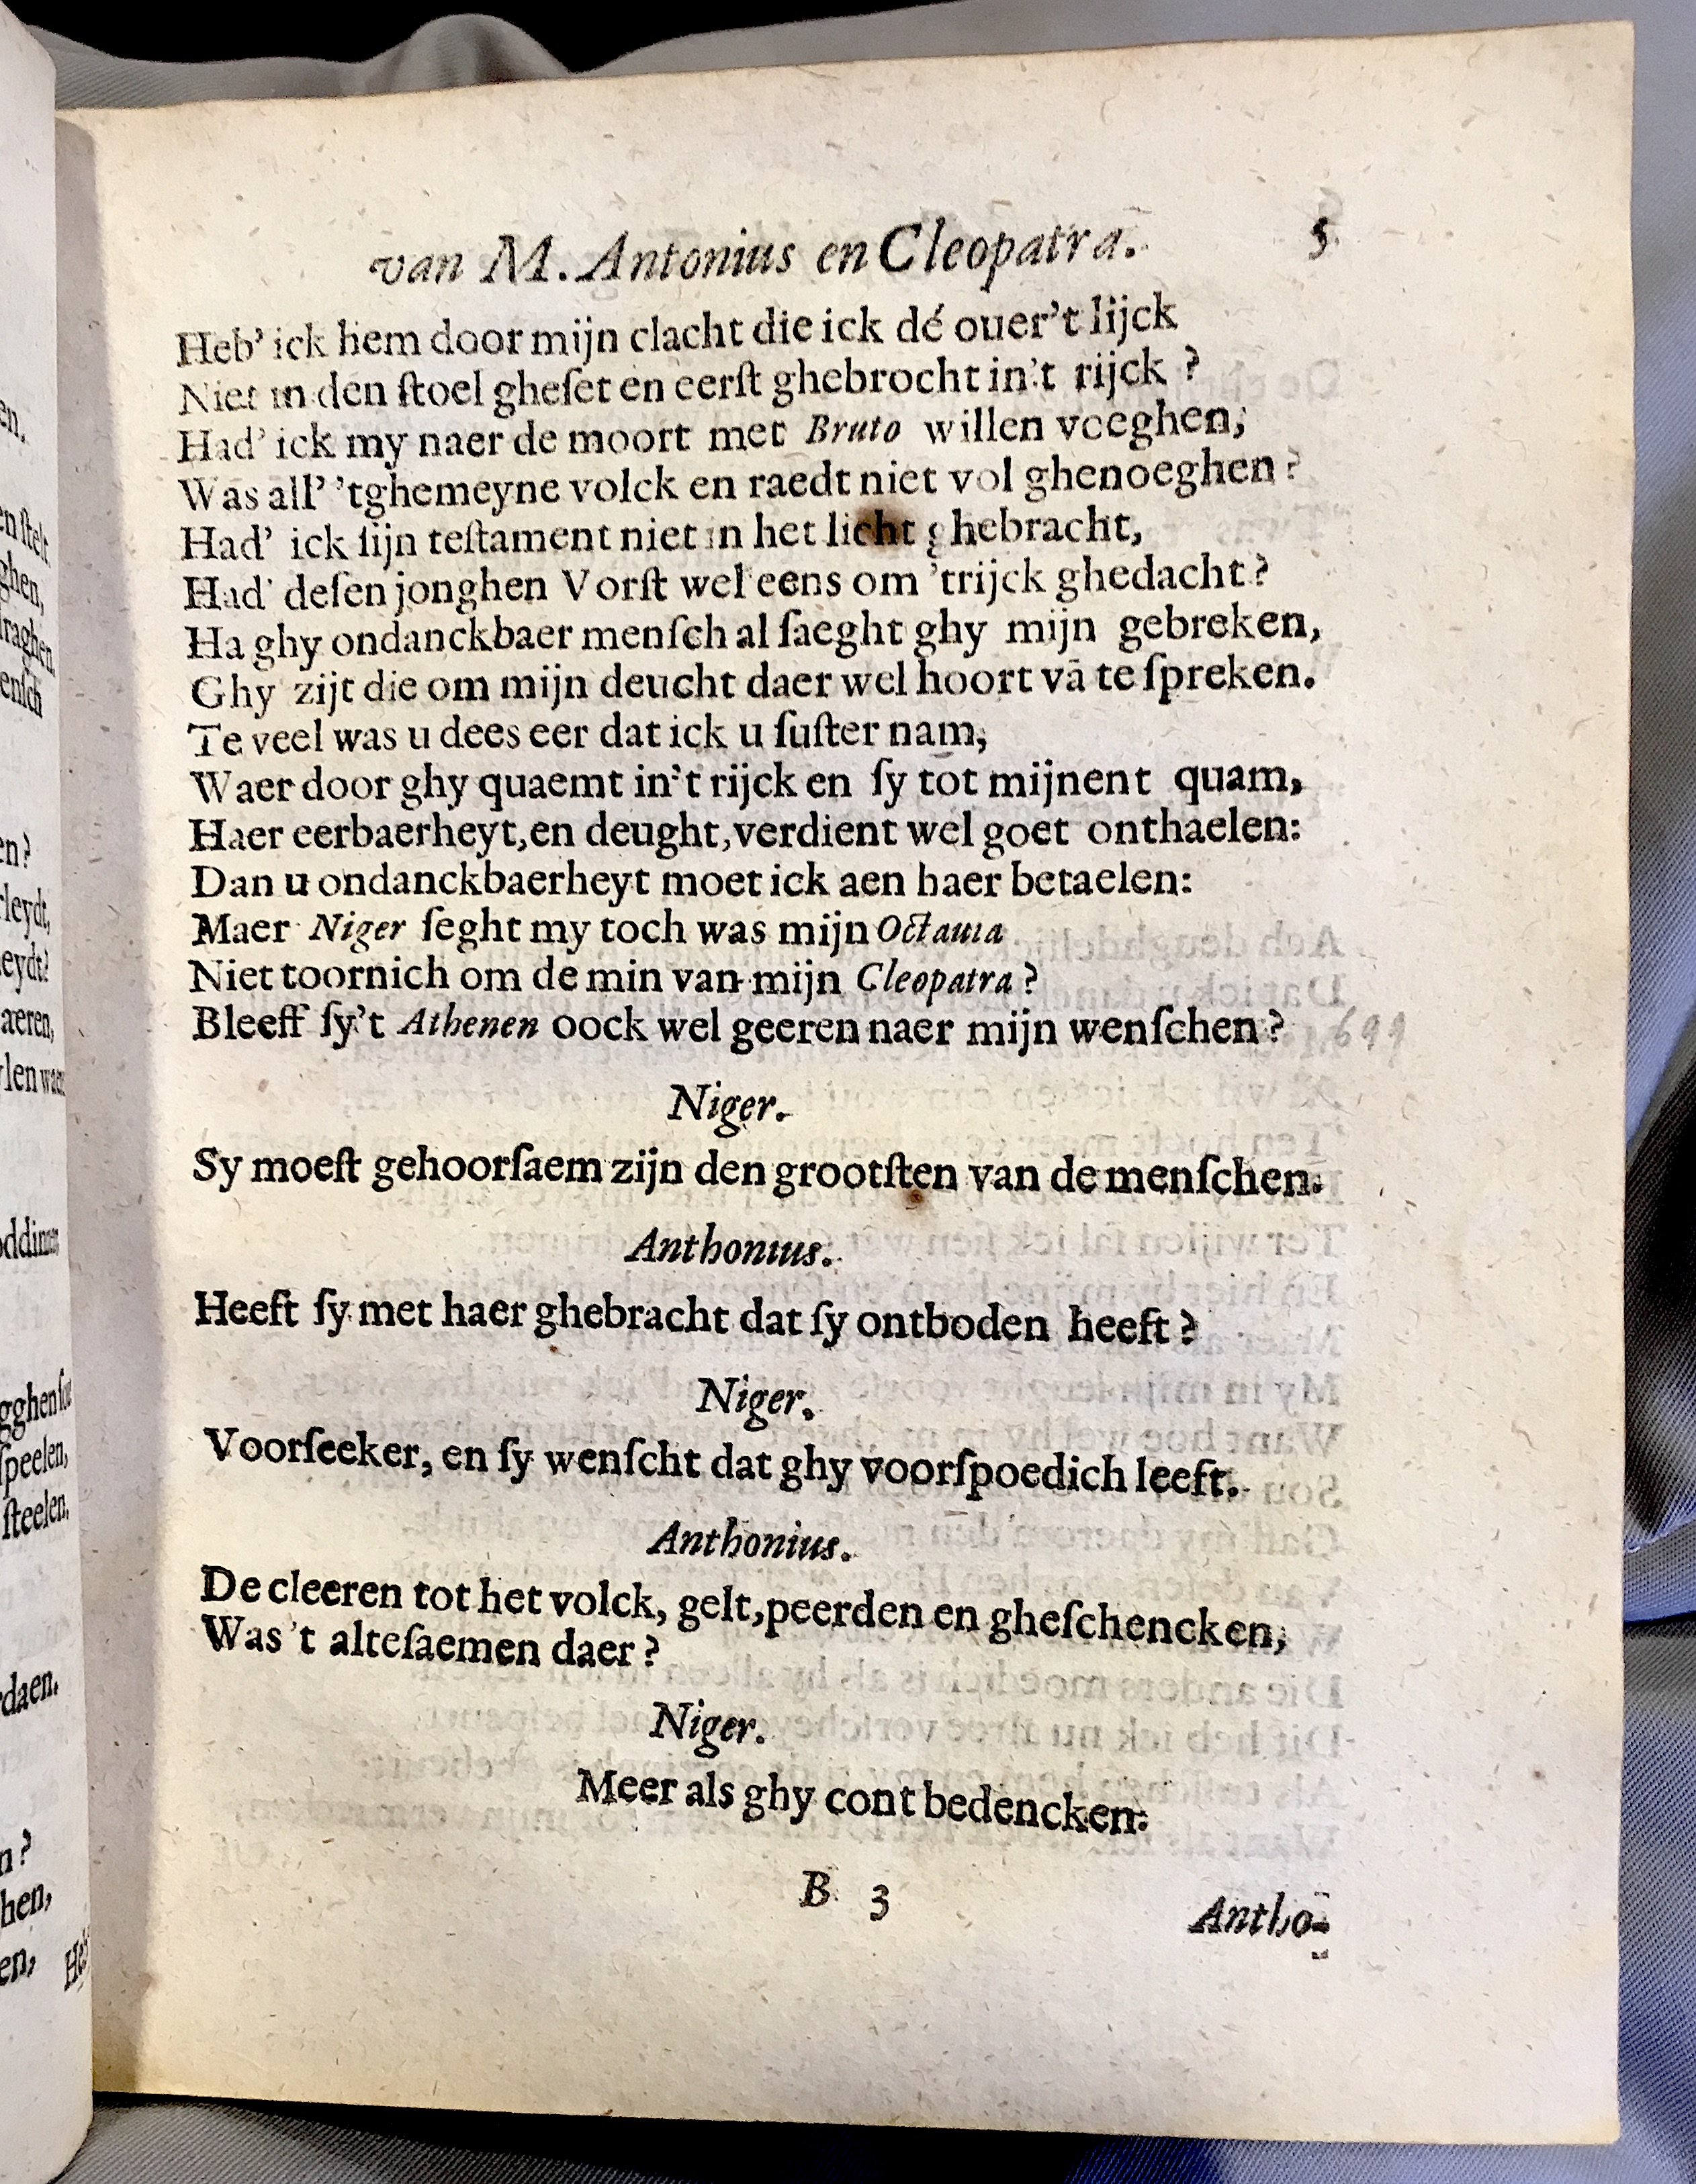 van M. Antonius en Cleopatra. 5
Heb' ick hem door mijn clacht die ick dé ouer't lijck
Niet in den ſtoel gheſet en eerſt ghebrocht in't rijck ?
Had' ick my naer de moort met Bruto willen voeghen,
Was all' 'tghemeyne volck en raedt niet vol ghenoeghen ?
Had' ick ſijn teſtament niet in het licht ghebracht,
Had' deſen jonghen Vorſt wel eens om 'trijck ghedacht ?
Ha ghy ondanckbaer menſch al ſaeght ghy mijn gebreken,
Ghy zijt die om mijn deucht daer wel hoort vā te ſpreken.
Te veel was u dees eer dat ick u ſuſter nam,
Waer door ghy quaemt in't rijck en ſy tot mijnent quam,
Haer eerbaerheyt,en deught,verdient wel goet onthaelen:
Dan u ondanckbaerheyt moet ick aen haer betaelen:
Maer Niger ſeght my toch was mijn Octauia
Niet toornich om de min van mijn Cleopatra ?
Bleeff ſy't Athenen oock wel geeren naer mijn wenſchen ? 699
Niger.
Sy moeſt gehoorſaem zijn den grootſten van de menſchen.
Anthonius.
Heeft ſy met haer ghebracht dat ſy ontboden heeft ?
Niger.
Voorſeeker, en ſy wenſcht dat ghy voorſpoedich leeft.
Anthonius.
De cleeren tot het volck, gelt,peerden en gheſchencken,
Was 't alteſaemen daer ?
Niger.
Meer als ghy cont bedencken.
B 3 Antho-
en.
en ſtelt
ghen,
draghen
enſch
en?
rleydt,
eydt?
aeren,
ylen waer
oddinnen
ſpeelen,
ſteelen.
rdaen.
n ?
hen,
en, Heb'